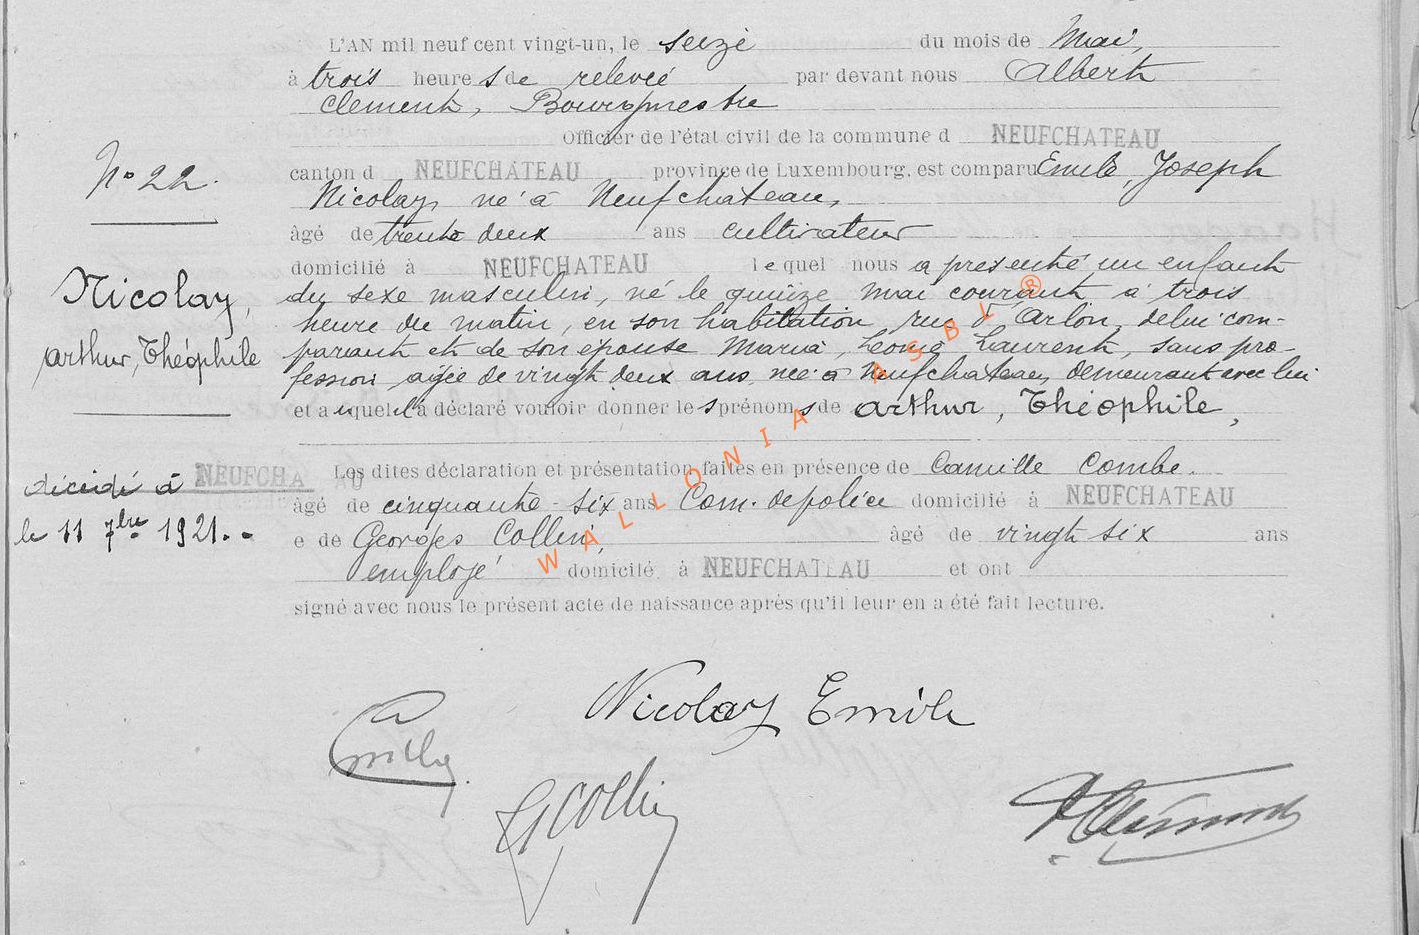 L'AN mil neuf cent vingt-un, le seize du mois de Mai,
à trois heures de relevée par devant nous Albert
Clement, Bourgmestre
Officier de l'état civil de la commune d NEUFCHATEAU
canton d NEUFCHATEAU province de Luxembourg, est comparu Emile, Joseph
Nicolay, né à Neufchateau,
âgé de trente deux ans cultivateur
domicilié à NEUFCHATEAU lequel nous a presenté un enfant
du sexe masculin, né le quinze Mai courant à trois
heure du matin, en son habitation rue d'Arlon, de lui com-
parant et de son épouse Maria, Leonie Laurent, sans pro-
fession agée de vingt deux ans, née à Neufchateau, demeurant avec lui
et auquel il a déclaré vouloir donner les prénoms de Arthur, Théophile,
Les dites déclaration et présentation faites en présence de Camille Combe.
âgé de cinquante-six ans Com. de police domicilié à NEUFCHATEAU
e de Georges Collin, âgé de vingt six ans
employé domicilé à NEUFCHATEAU et ont
signé avec nous le présent acte de naissance après qu'il leur en a été fait lecture.
N° 22.
Nicolay,
Arthur, Théophile
décédé à NEUFCHATEAU
le 11 7bre 1921.
Nicolay Emile
GCollin
WALLONIA ASBL ®